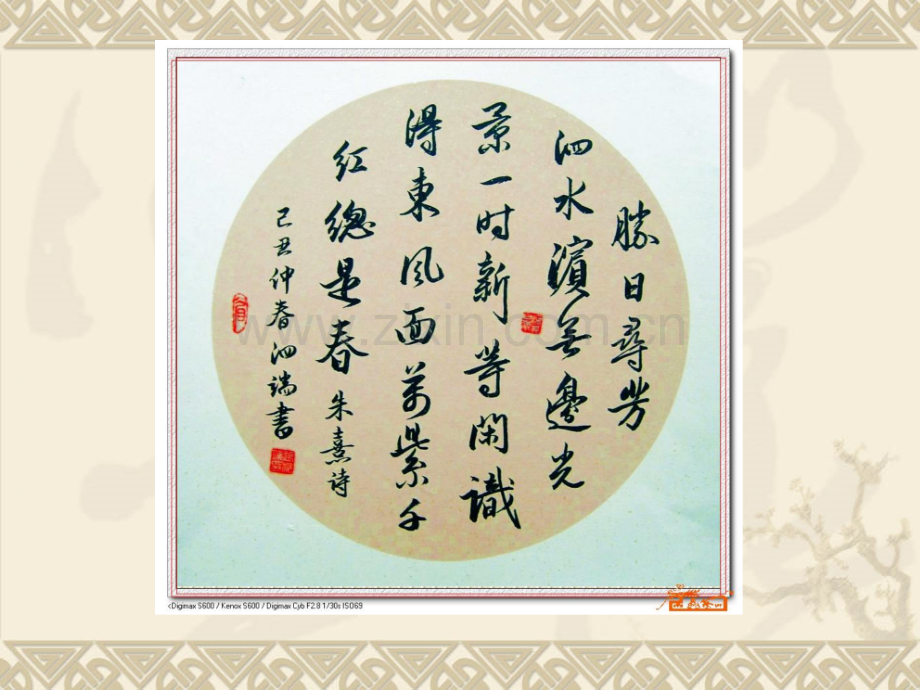 勝日尋芳
泗水濱無邊光
景一时新等閑識
得東風面萬紫千
紅總是春 朱熹诗
己丑仲春泗端書
www.zixin.com.cn
<Digimax S600 / Kenox S600 / Digimax Cyb F2.8 1/30s ISO69